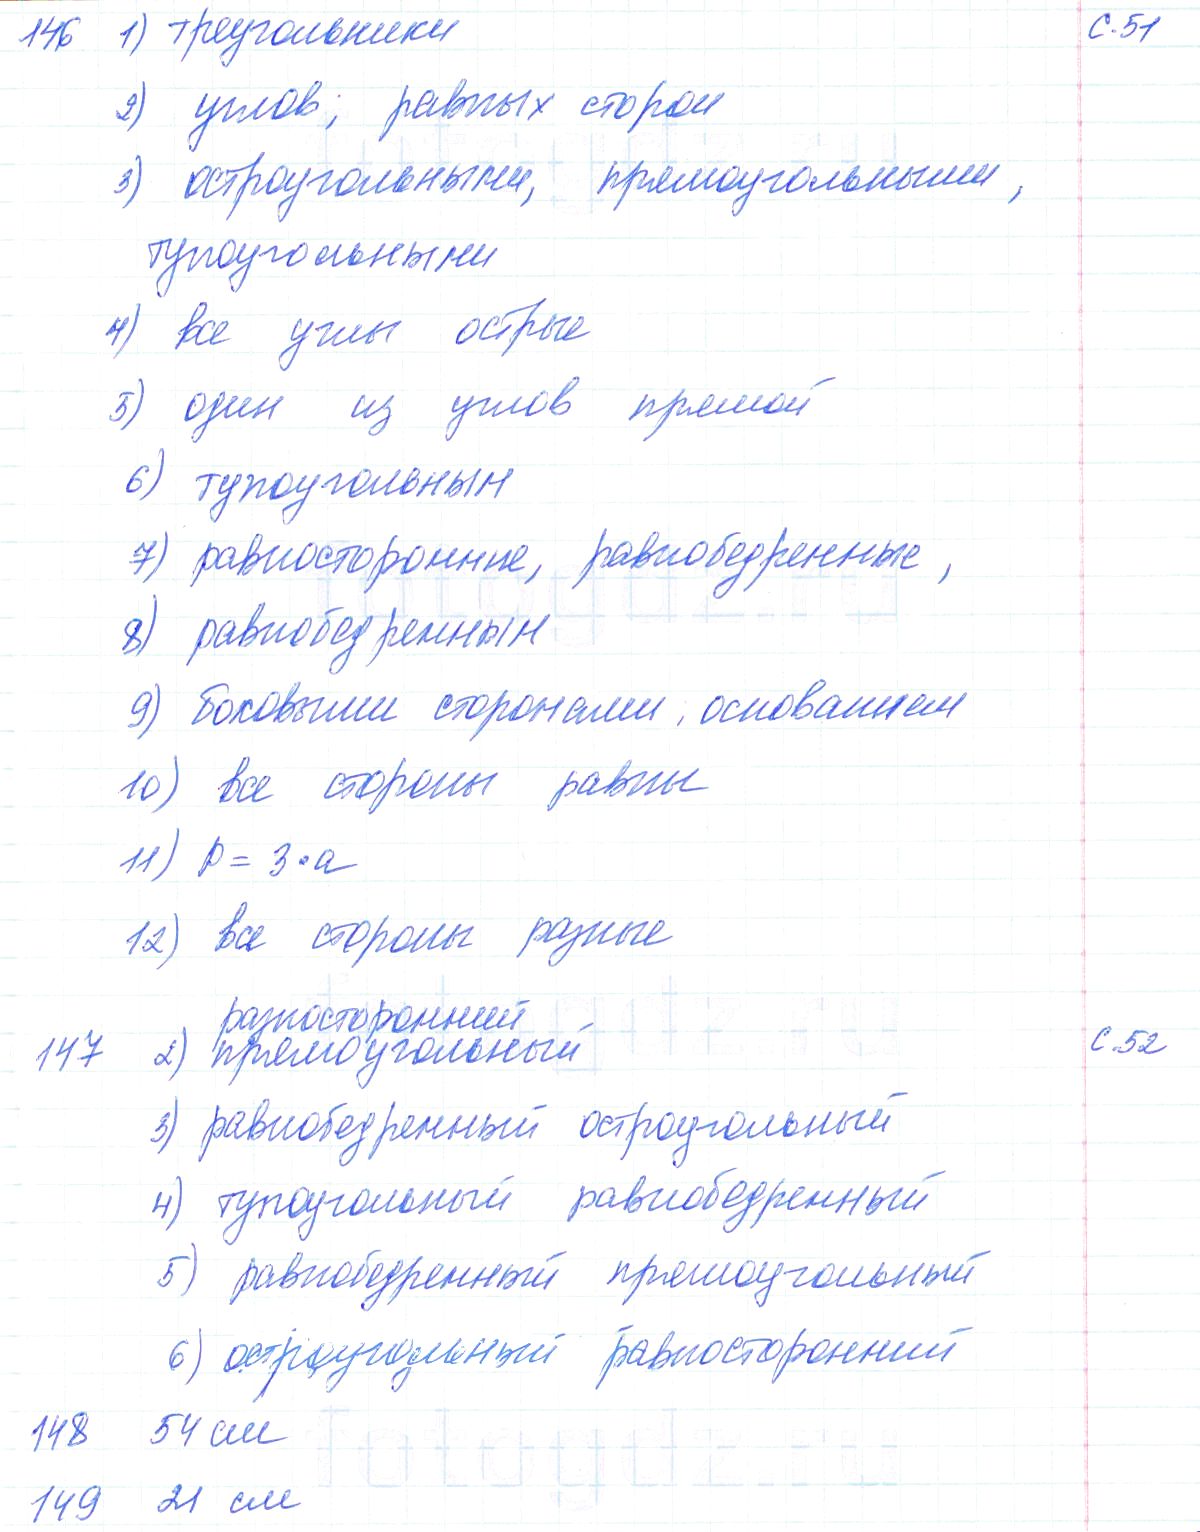 146 1) треугольники с.51
2) углов; равных сторон
3) остроугольными, прямоугольными,
тупоугольными
4) все углы острые
5) один из углов прямой
6) тупоугольным
7) равносторонние, равнобедренные,
8) равнобедренным
9) боковыми сторонами, основанием
10) все стороны равны
11) P = 3·a
12) все стороны разные
разносторонний
147 2) прямоугольный с.52
3) равнобедренный остроугольный
4) тупоугольный равнобедренный
5) равнобедренный прямоугольный
6) остроугольный равносторонний
148 54 см
149 21 см
fotogdz.ru
fotogdz.ru
fotogdz.ru
fotogdz.ru